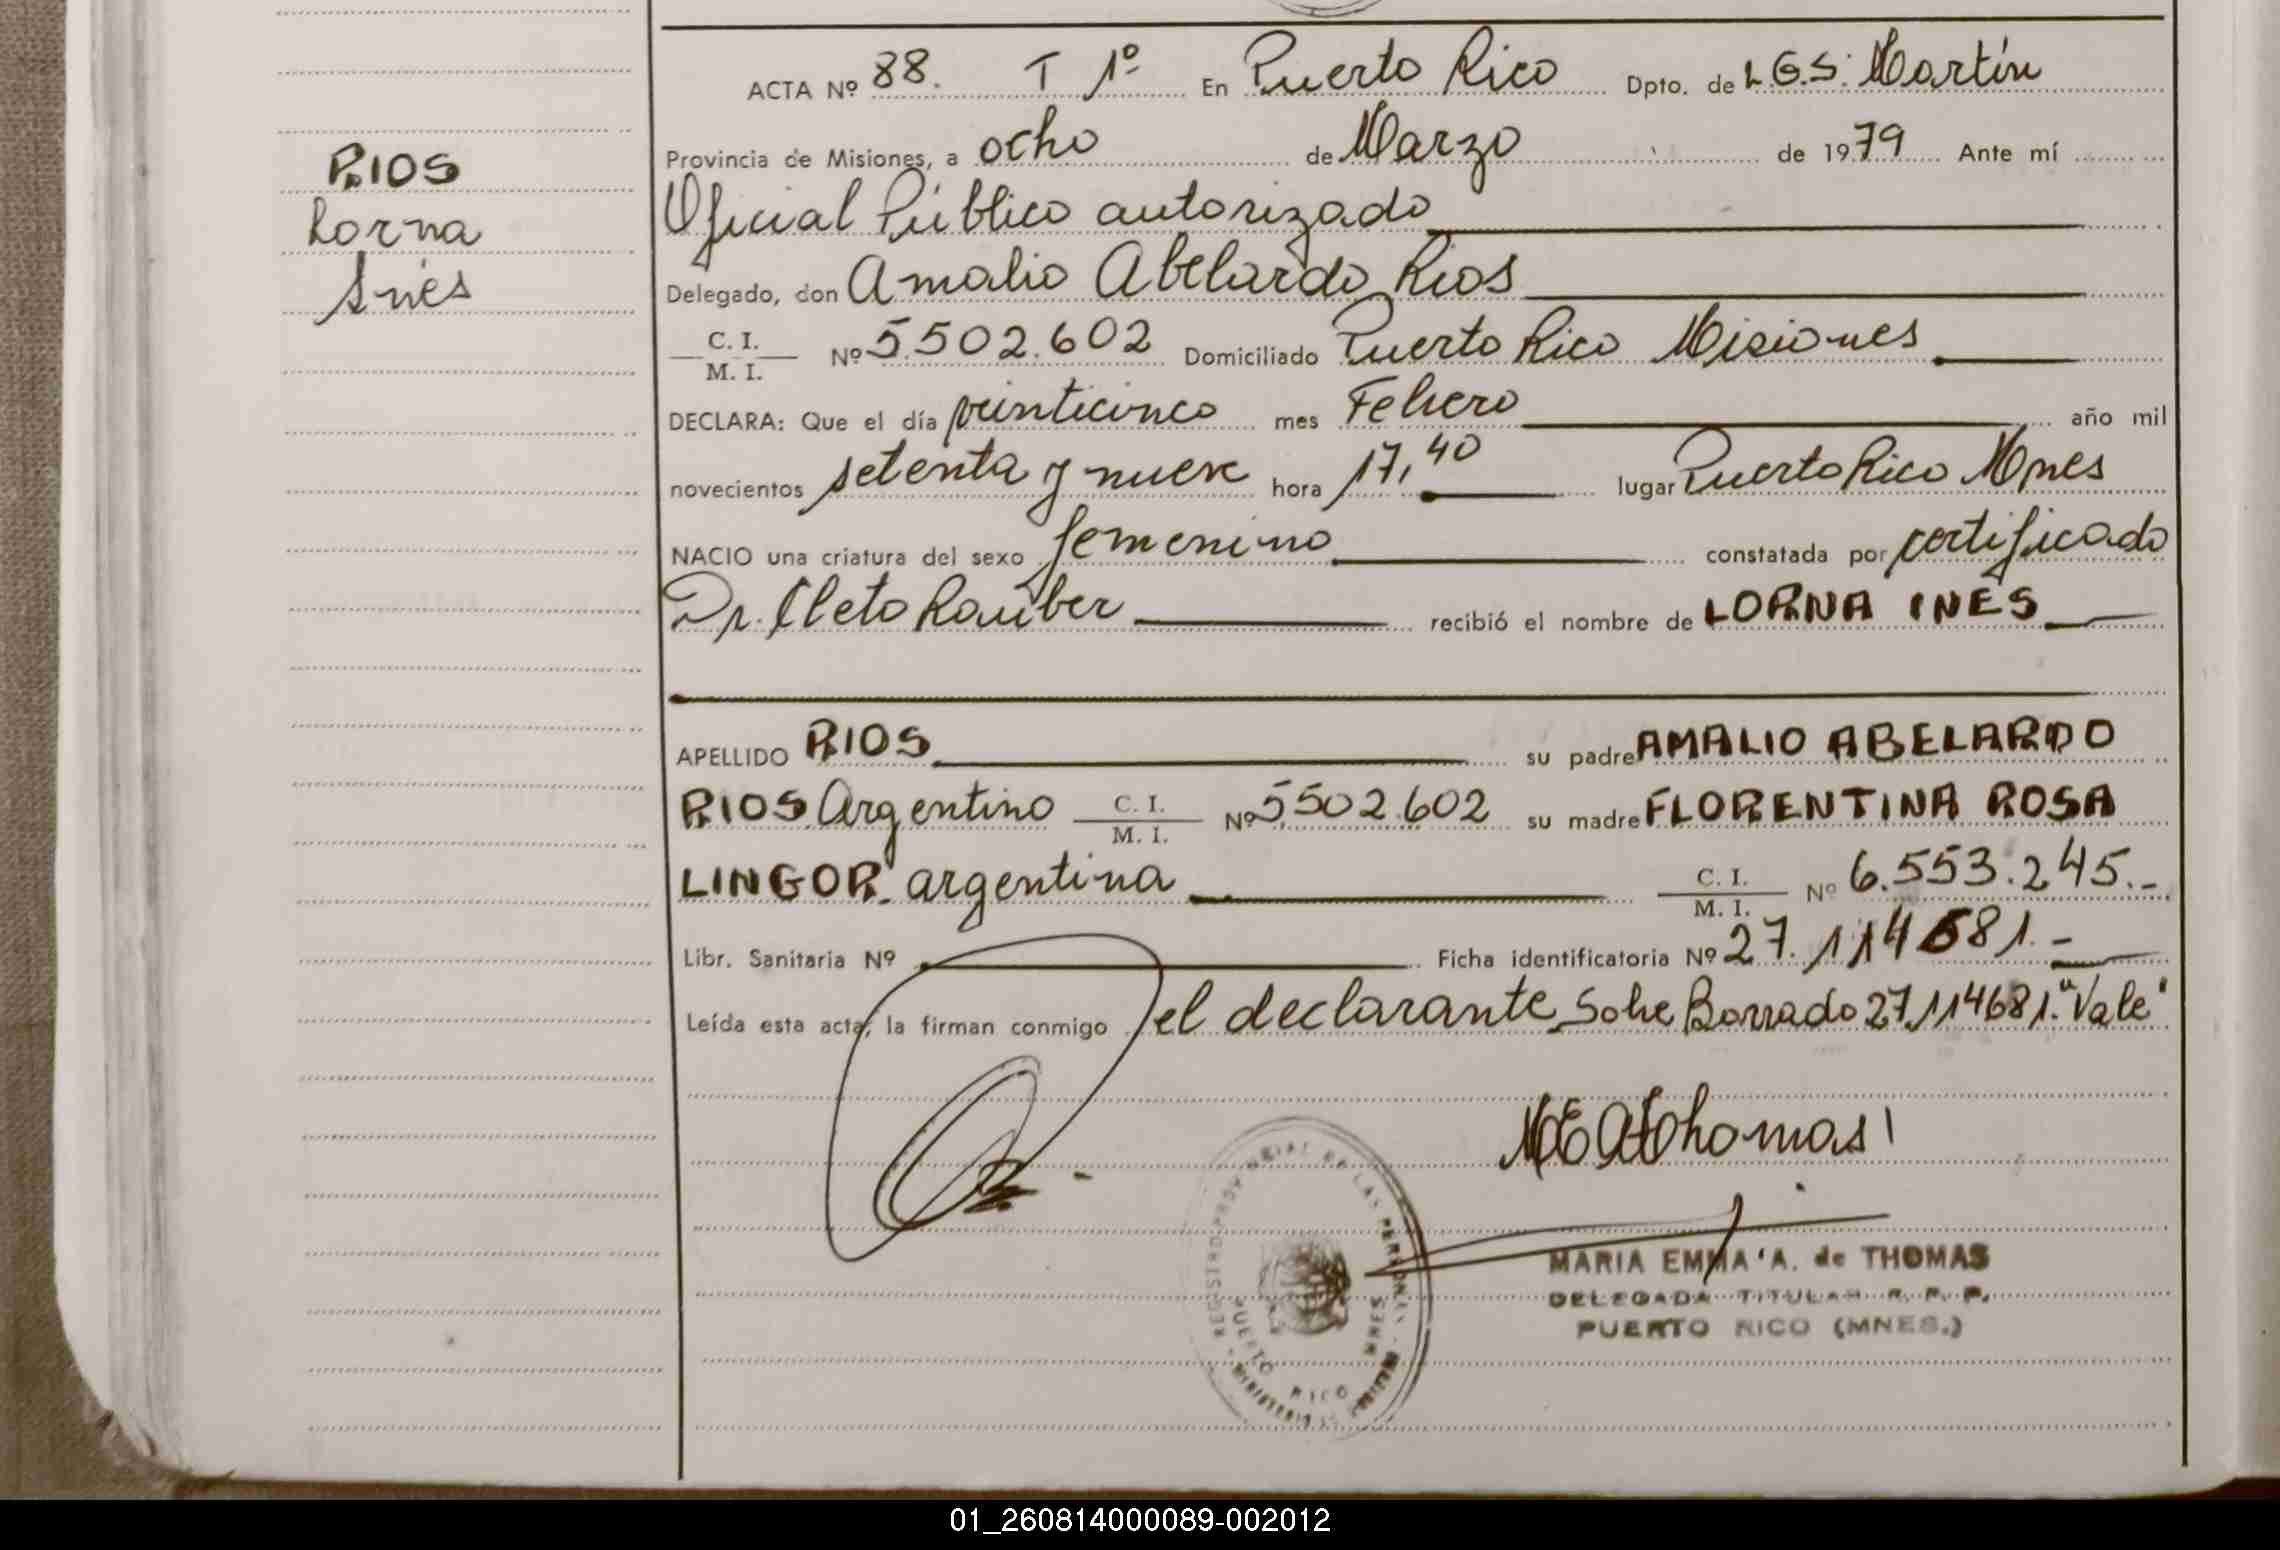 ACTA Nº 88. T 1º En Puerto Rico Dpto. de L.G.S. Martín
Provincia de Misiones, a ocho de Marzo de 1979 Ante mí
Oficial Público autorizado
Delegado, don Amalio Abelardo Rios
C. I. / M. I. Nº 5.502.602 Domiciliado Puerto Rico Misiones
DECLARA: Que el día veinticinco mes Febrero año mil
novecientos setenta y nueve hora 17,40 lugar Puerto Rico Mnes
NACIO una criatura del sexo femenino constatada por certificado
Dr. Cleto Rauber recibió el nombre de LORNA INÉS
APELLIDO RIOS su padre AMALIO ABELARDO
RIOS Argentino C. I. / M. I. Nº 5.502.602 su madre FLORENTINA ROSA
LINGOR. argentina C. I. / M. I. Nº 6.553.245.-
Libr. Sanitaria Nº Ficha identificatoria Nº 27.114681.-
Leída esta acta, la firman conmigo el declarante Sobre Borrado 27.114681. "Vale"
RIOS
Lorna
Inés
MEAThomas
MARIA EMMA A. de THOMAS
DELEGADA TITULAR R. P. P.
PUERTO RICO (MNES.)
REGISTRO PROVINCIAL DE LAS PERSONAS
PUERTO RICO MNES
01_260814000089-002012